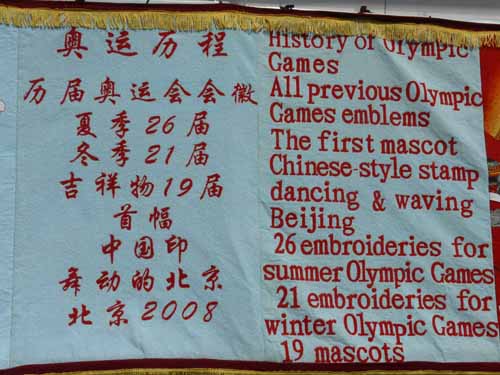 奥运历程
历届奥运会会徽
夏季26届
冬季21届
吉祥物19届
首幅
中国印
舞动的北京
北京2008
History of Olympic
Games
All previous Olympic
Games emblems
The first mascot
Chinese-style stamp
dancing & waving
Beijing
26 embroideries for
summer Olympic Games
21 embroideries for
winter Olympic Games
19 mascots